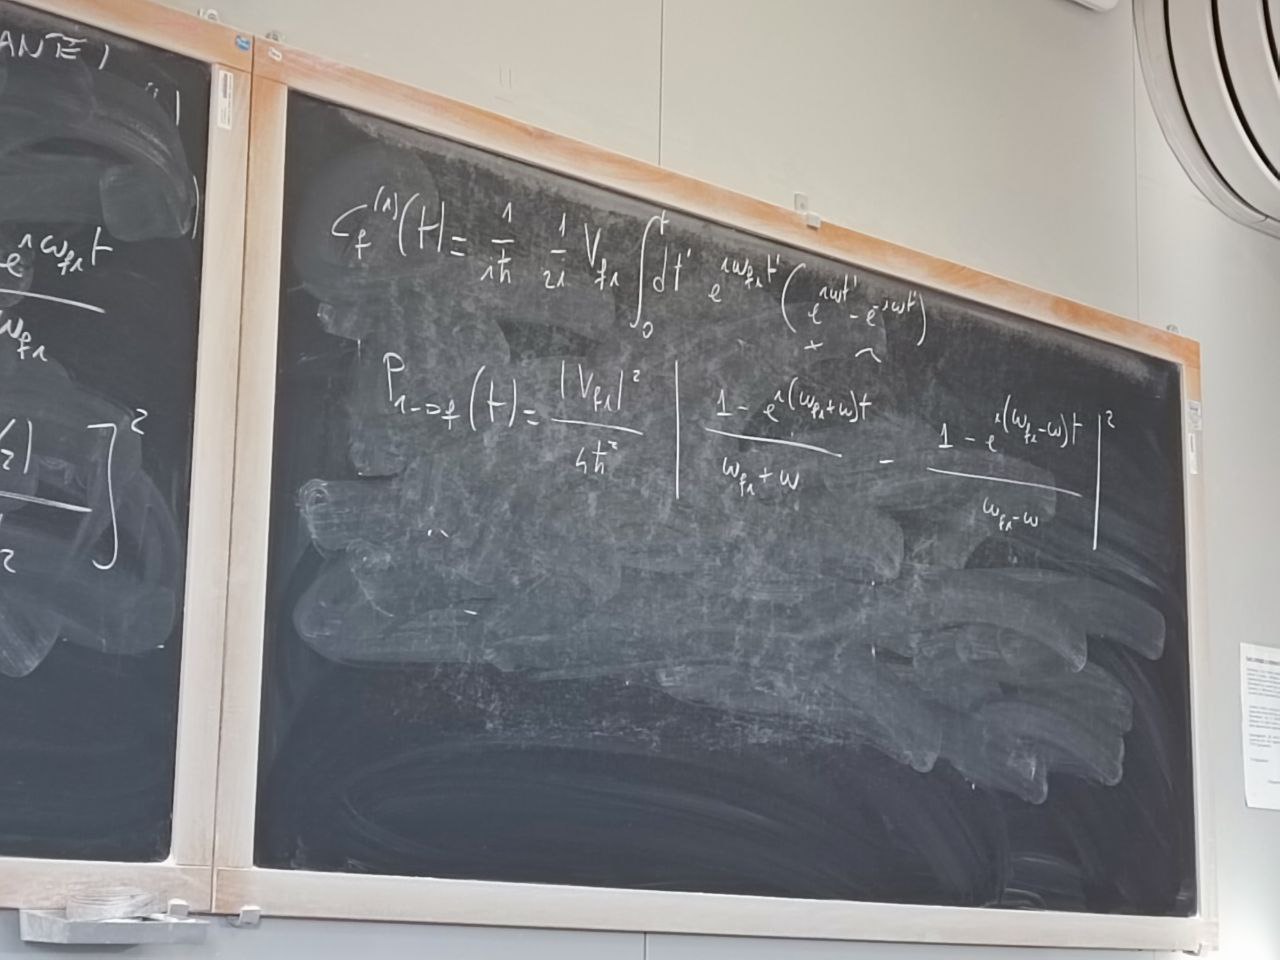 ANTE)
e^{iω_{fi}t}
ω_{fi}
]^2
C_f^{(1)}(t) = \frac{1}{iħ} \frac{1}{2i} V_{fi} ∫_0^t dt' e^{iω_{fi}t'} (e^{iωt'} - e^{-iωt'})
P_{i→f}(t) = \frac{|V_{fi}|^2}{4ħ^2} | \frac{1 - e^{i(ω_{fi}+ω)t}}{ω_{fi}+ω} - \frac{1 - e^{i(ω_{fi}-ω)t}}{ω_{fi}-ω} |^2